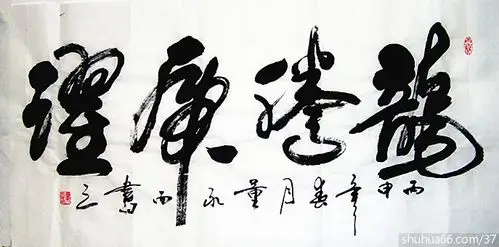 龍騰虎躍
丙申年春月 書之
shuhua66.com/37